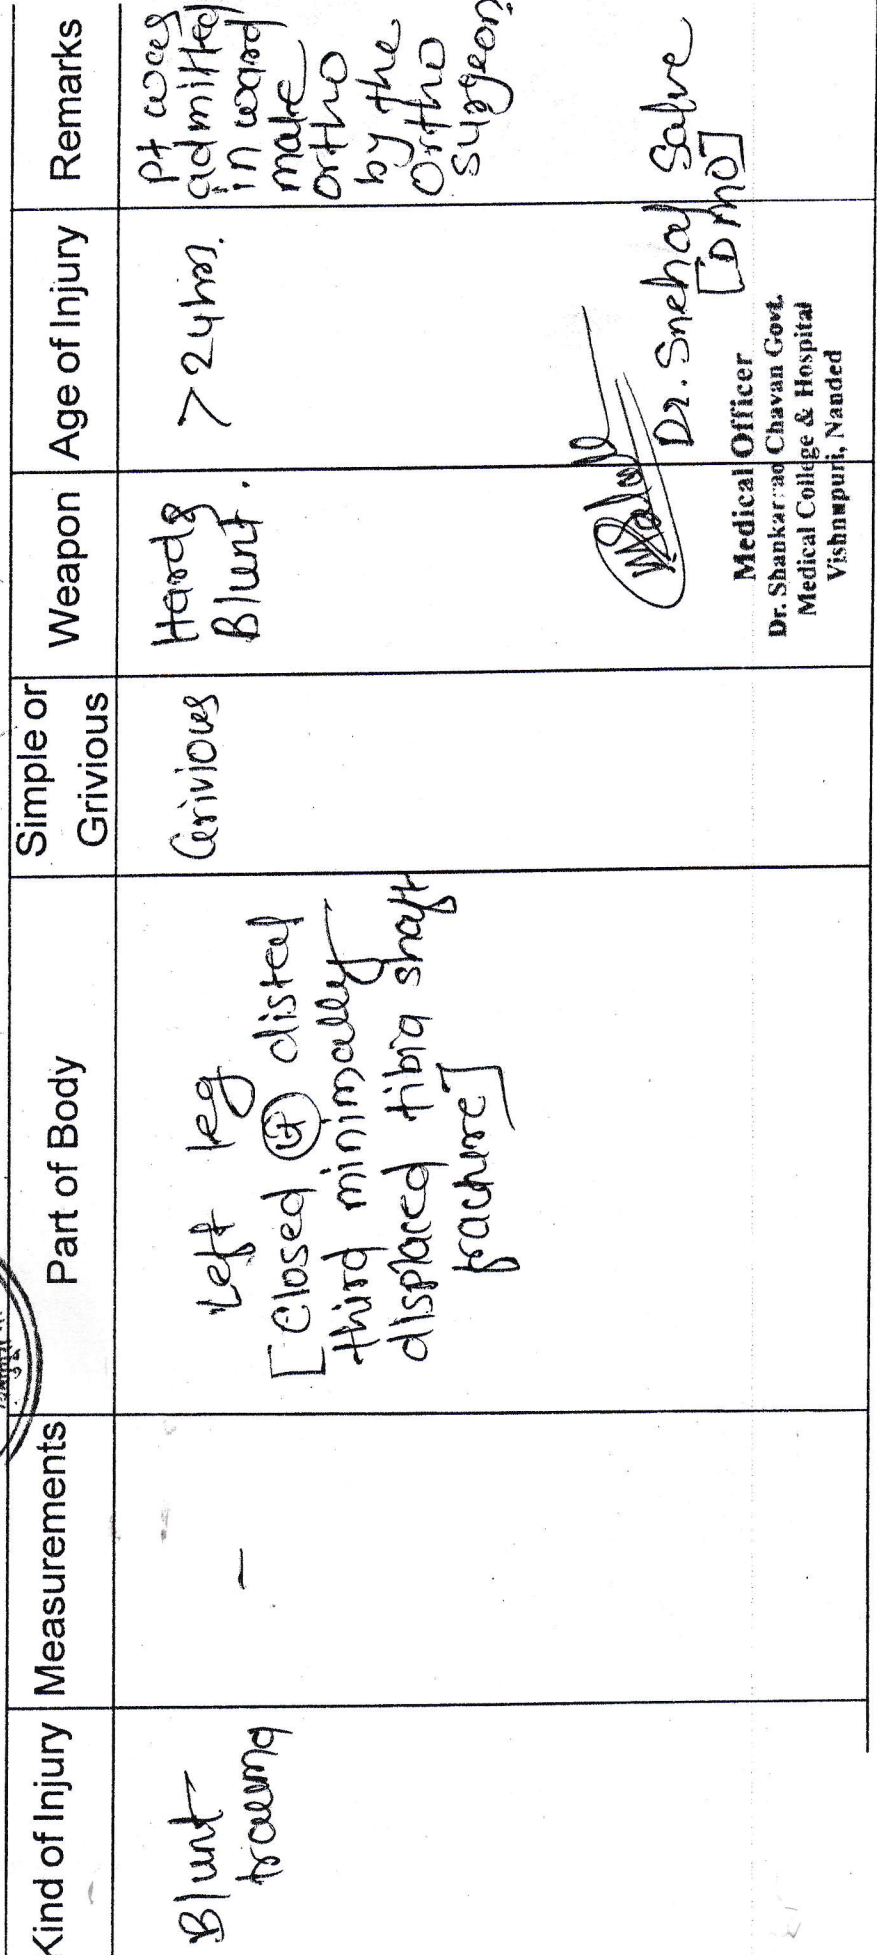 Kind of Injury
Measurements
Part of Body
Simple or
Grivious
Weapon
Age of Injury
Remarks
Blunt
trauma
-
Left leg
[Closed Lt distal
third minimally
displaced tibia shaft
fracture]
Grivious
Hard &
Blunt.
> 24 hrs.
Pt was
admitted
in ward
male
ortho
by the
ortho
surgeon
Dr. Snehal Salve
[DMO]
Medical Officer
Dr. Shankarrao Chavan Govt.
Medical College & Hospital
Vishnupuri, Nanded